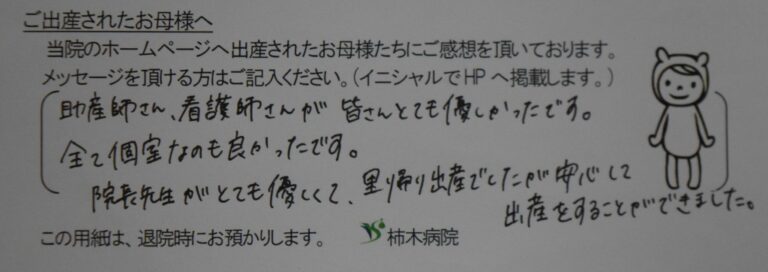 ご出産されたお母様へ
当院のホームページへ出産されたお母様たちにご感想を頂いております。
メッセージを頂ける方はご記入ください。(イニシャルでHPへ掲載します。)
助産師さん、看護師さんが 皆さんとても優しかったです。
全て個室なのも良かったです。
院長先生がとても優しくて、里帰り出産でしたが安心して
出産をすることができました。
この用紙は、退院時にお預かりします。 柿木病院